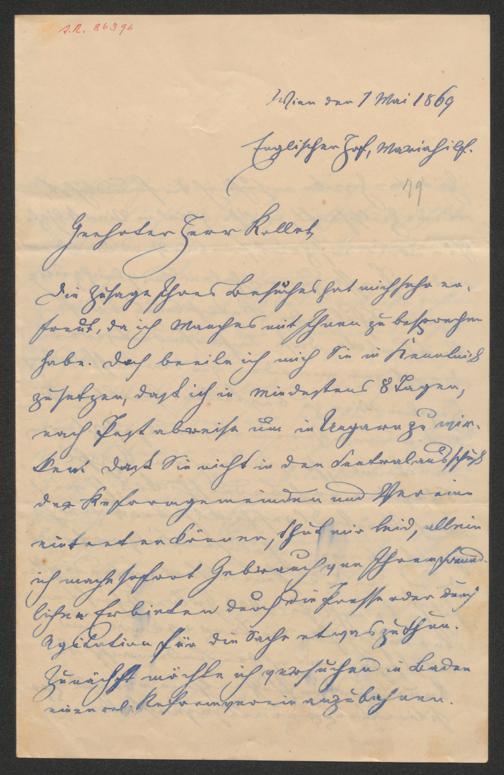 J.N. 86396
Wien den 7 Mai 1869
Englischer Hof, Mariahilf.
79
Geehrter Herr Rollet,
Die Zusage Ihres Besuches hat mich sehr er-
freut, da ich Manches mit Ihnen zu besprechen
habe. Doch beeile ich mich Sie in Kenntniß
zu setzen, daß ich in mindestens 8 Tagen,
nach Pest abreise um in Ungarn zu wir-
ken. Daß Sie nicht in den Centralausschuß
der Reformgemeinden und Vereine
eintreten können, thut mir leid, allein
ich mache sofort Gebrauch von Ihrem freund-
lichen Erbieten durch die Presse oder durch
Agitation für die Sache etwas zu thun.
Zunächst möchte ich versuchen in Baden
einen rel. Reformverein anzubahnen.